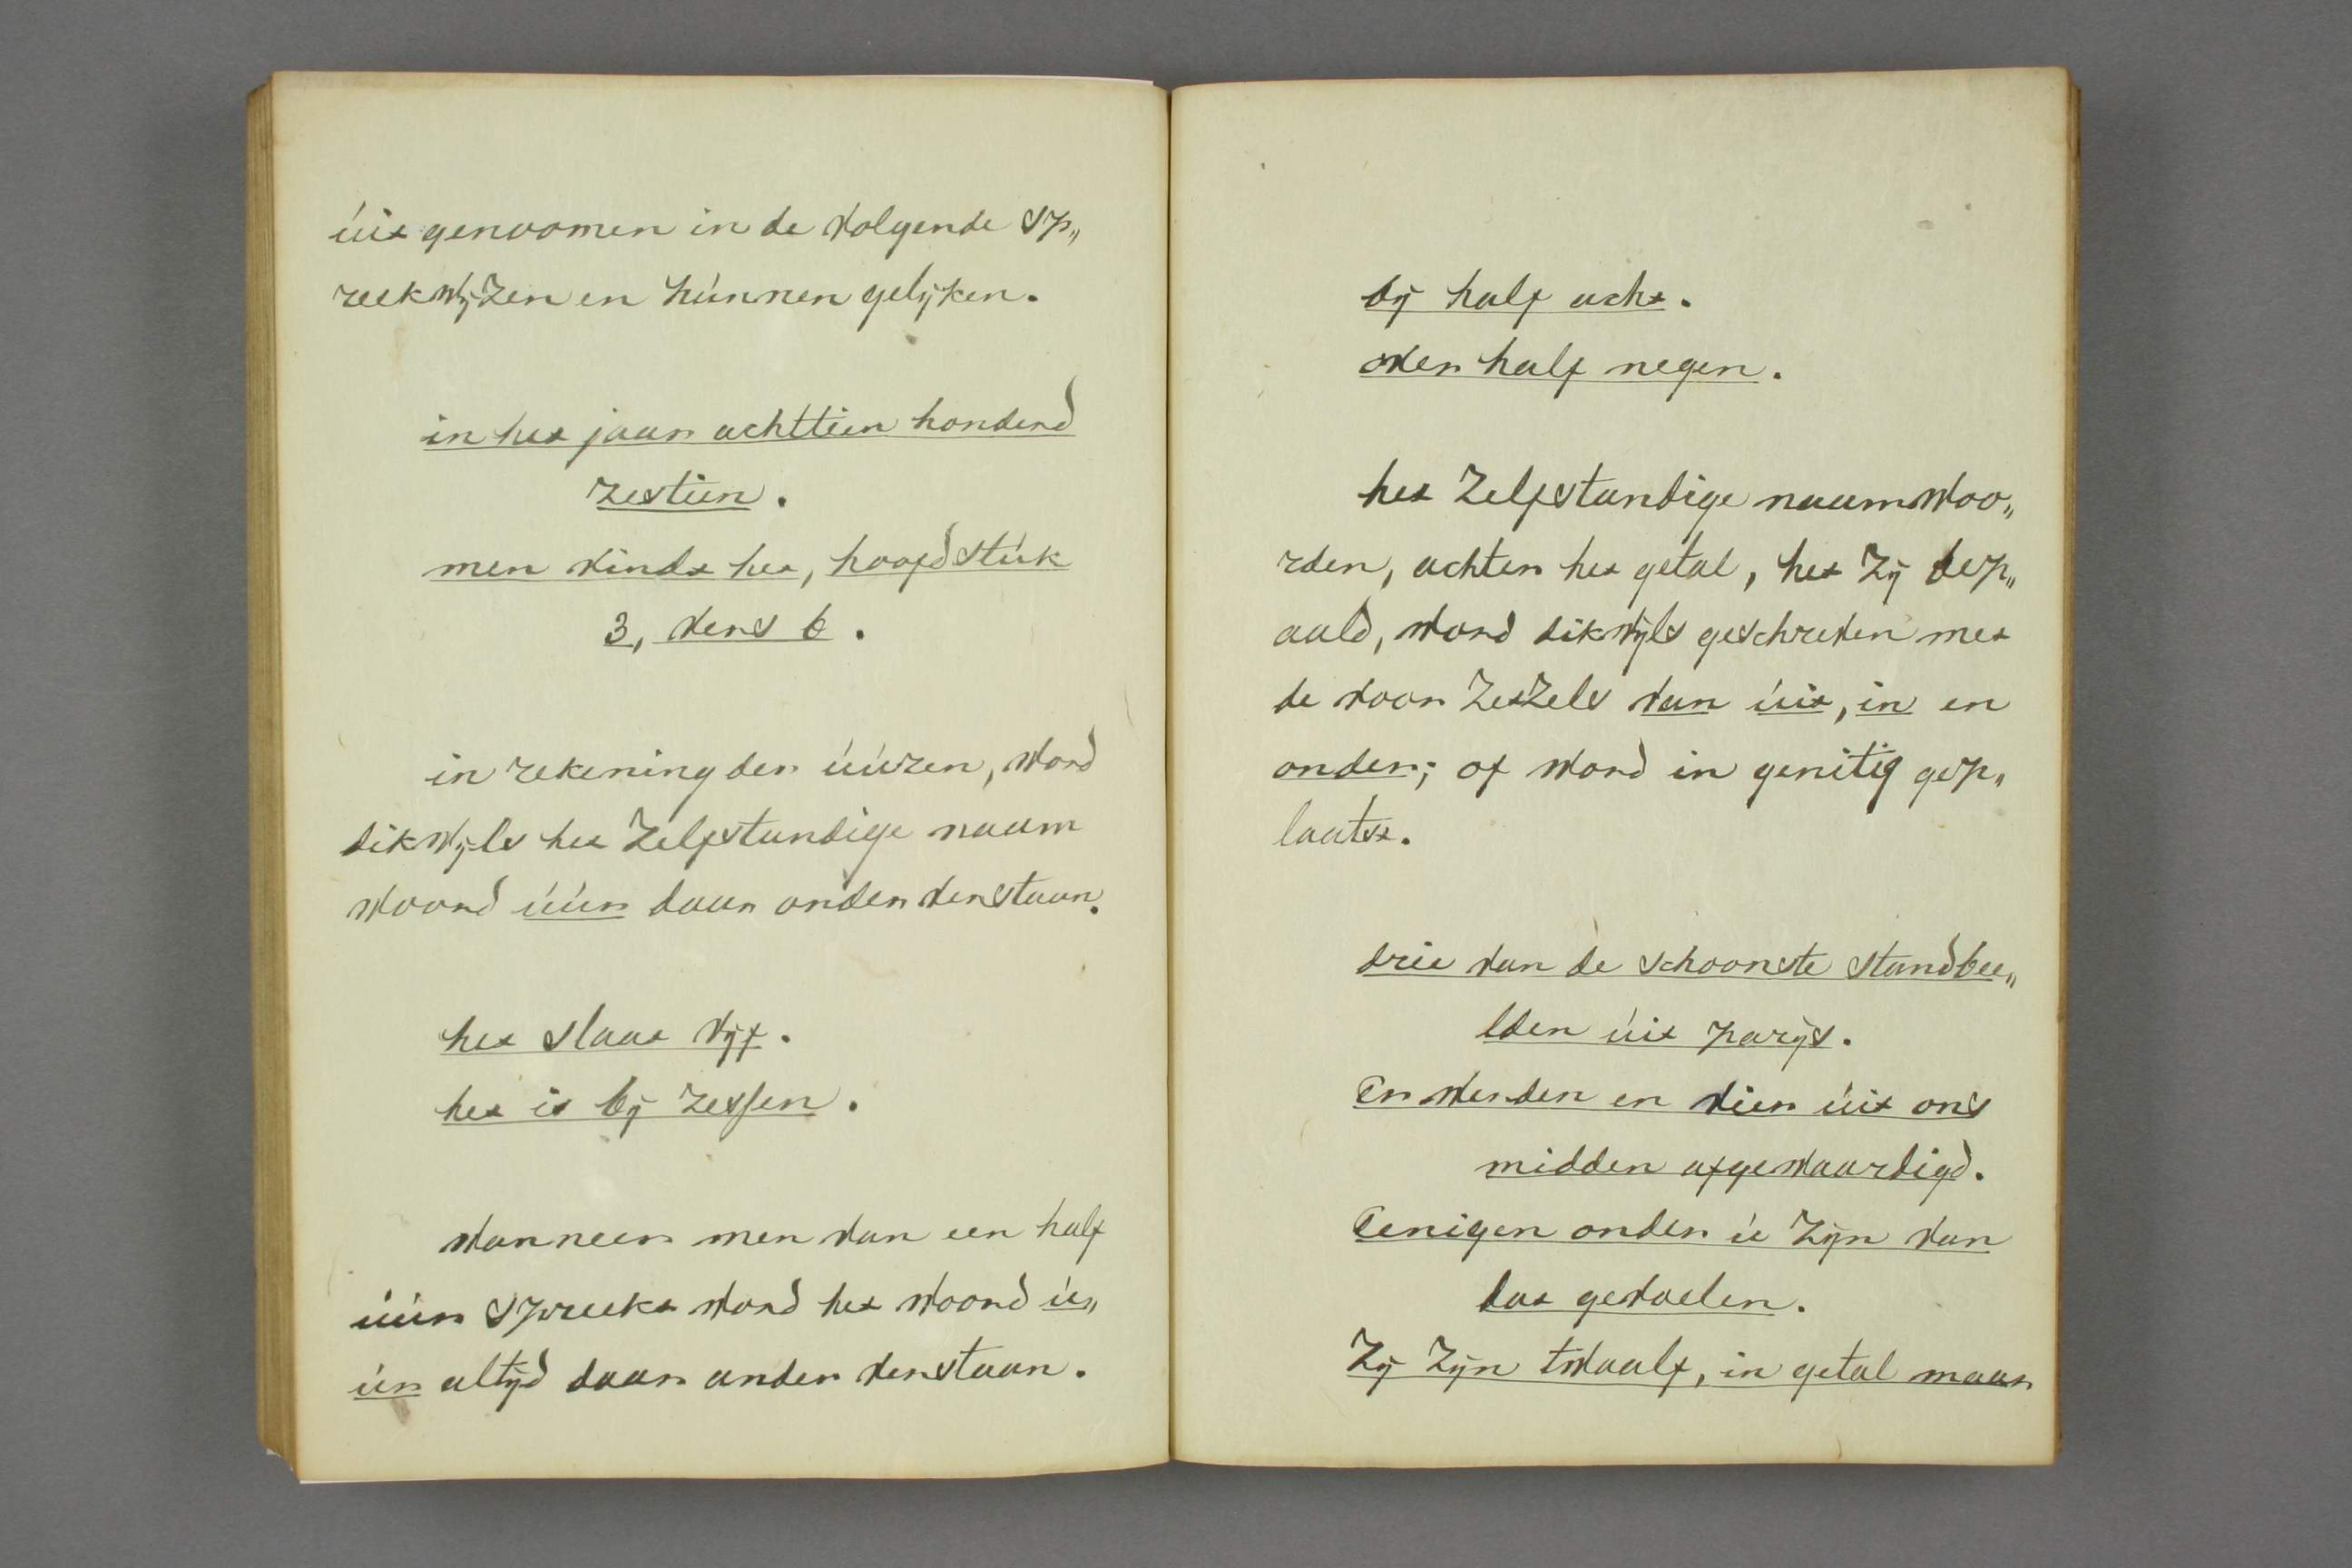 uit genoomen in de volgende sp„
reekwijzen en hunnen gelijken.
in het jaar achttien honderd
zestien.
men vindt het, hoofdstuk
3, vers 6.
in rekening der uuren, word
dikwijls het Zelfstandige naam
woord uur daar onder verstaan.
het slaat vijf.
het is bij zessen.
wanneer men van een half
uur spreekt word het woord u„
ur altijd daar onder verstaan.
bij half acht.
over half negen.
het Zelfstandige naamwoo„
rden, achter het getal, het Zij bep„
aald, word dikwijls geschreven met
de voor Zetzels van uit, in en
onder; of word in genitig gep„
laatst.
drie van de schoonste standbee„
lden uit parijs.
Er werden en vier uit ons
midden afgevaardigd.
Eenigen onder u Zijn van
dat gevoelen.
Zij Zijn twaalf, in getal maar